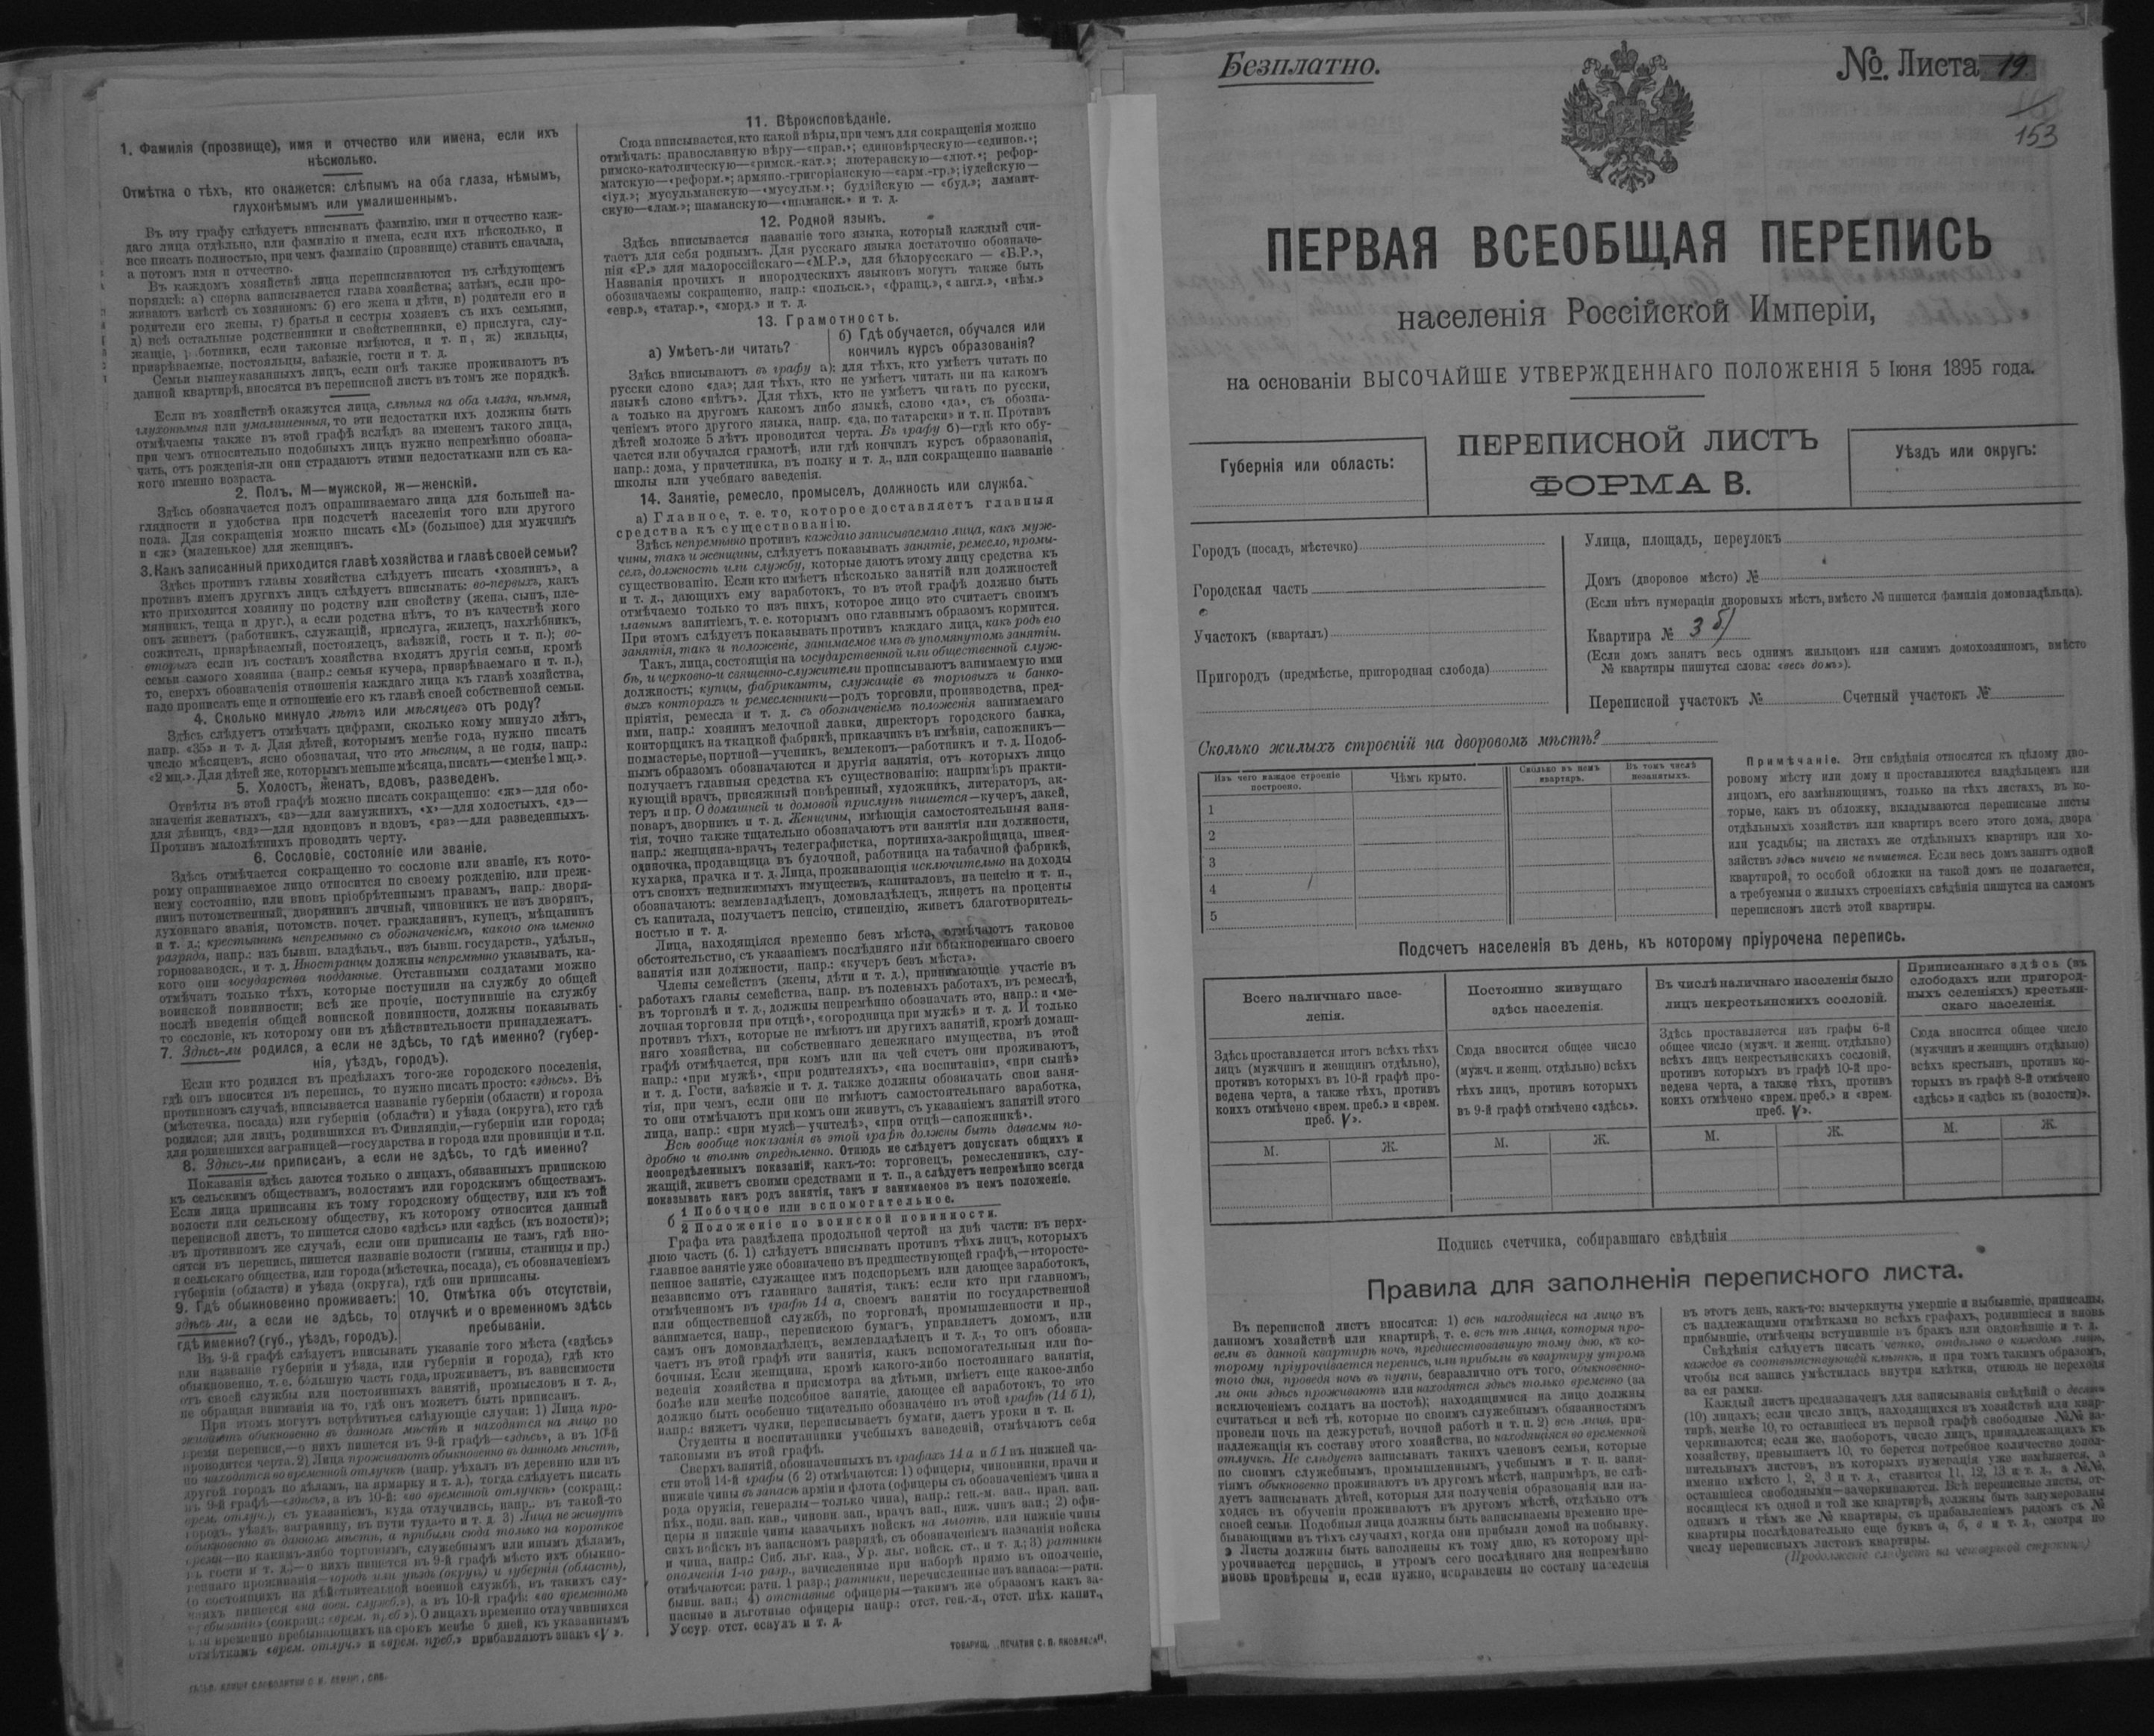 1. Фамилія (прозвище), имя и отчество или имена, если ихъ
нѣсколько.
Отмѣтка о тѣхъ, кто окажется: слѣпымъ на оба глаза, нѣмымъ,
глухонѣмымъ или умалишеннымъ.
Въ эту графу слѣдуетъ вписывать фамилію, имя и отчество каж-
даго лица отдѣльно, или фамилію и имена, если ихъ нѣсколько, и
все писать полностью, при чемъ фамилію (прозвище) ставить сначала,
а потомъ имя и отчество.
Въ каждомъ хозяйствѣ лица переписываются въ слѣдующемъ
порядкѣ: а) сперва записывается глава хозяйства; затѣмъ, если про-
живаютъ вмѣстѣ съ хозяиномъ: б) его жена и дѣти, в) родители его и
родители его жены, г) братья и сестры хозяевъ съ ихъ семьями,
д) всѣ остальные родственники и свойственники, е) прислуга, слу-
жащіе, работники, если таковые имѣются, и т. п, ж) жильцы,
призрѣваемые, постояльцы, заѣзжіе, гости и т. д.
Семьи вышеуказанныхъ лицъ, если онѣ также проживаютъ въ
данной квартирѣ, вносятся въ переписной листъ въ томъ же порядкѣ.
Если въ хозяйствѣ окажутся лица, слѣпыя на оба глаза, нѣмыя,
глухонѣмыя или умалишенныя, то эти недостатки ихъ должны быть
отмѣчаемы также въ этой графѣ вслѣдъ за именемъ такого лица,
при чемъ относительно подобныхъ лицъ нужно непремѣнно обозна-
чать, отъ рожденія-ли они страдаютъ этими недостатками или съ ка-
кого именно возраста.
2. Полъ, М—мужской, ж—женскій.
Здѣсь обозначается полъ опрашиваемаго лица для большей на-
глядности и удобства при подсчетѣ населенія того или другого
пола. Для сокращенія можно писать «М» (большое) для мужчинъ
и «ж» (маленькое) для женщинъ.
3. Какъ записанный приходится главѣ хозяйства и главѣ своей семьи?
Здѣсь противъ главы хозяйства слѣдуетъ писать «хозяинъ», а
противъ именъ другихъ лицъ слѣдуетъ вписывать: во-первыхъ, какъ
кто приходится хозяину по родству или свойству (жена, сынъ, пле-
мянникъ, теща и друг.), а если родства нѣтъ, то въ качествѣ кого
онъ живетъ (работникъ, служащій, прислуга, жилецъ, нахлѣбникъ,
сожитель, призрѣваемый, постоялецъ, заѣзжій, гость и т. п.); во-
вторыхъ если въ составъ хозяйства входятъ другія семьи, кромѣ
семьи самого хозяина (напр.: семья кучера, призрѣваемаго и т. п.),
то, сверхъ обозначенія отношенія каждаго лица къ главѣ хозяйства,
надо прописать еще и отношеніе его къ главѣ своей собственной семьи.
4. Сколько минуло лѣтъ или мѣсяцевъ отъ роду?
Здѣсь слѣдуетъ отмѣчать цифрами, сколько кому минуло лѣтъ,
напр. «35» и т. д. Для дѣтей, которымъ менѣе года, нужно писать
число мѣсяцевъ, ясно обозначая, что это мѣсяцы, а не годы, напр.:
«2 мц.». Для дѣтей же, которымъ меньше мѣсяца, писать—«менѣе 1 мц.».
5. Холостъ, женатъ, вдовъ, разведенъ.
Отвѣты въ этой графѣ можно писать сокращенно: «ж»—для обо-
значенія женатыхъ, «з»—для замужнихъ, «х»—для холостыхъ, «д»—
для дѣвицъ, «вд»—для вдовцовъ и вдовъ, «рз»—для разведенныхъ.
Противъ малолѣтнихъ проводить черту.
6. Сословіе, состояніе или званіе.
Здѣсь отмѣчается сокращенно то сословіе или званіе, къ кото-
рому опрашиваемое лицо относится по своему рожденію, или преж-
нему состоянію, или вновь пріобрѣтеннымъ правамъ, напр.: дворя-
нинъ потомственный, дворянинъ личный, чиновникъ не изъ дворянъ,
духовнаго званія, потомств. почет. гражданинъ, купецъ, мѣщанинъ
и т. д.; крестьянинъ непремѣнно съ обозначеніемъ, какого онъ именно
разряда, напр.: изъ бывш. владѣльч., изъ бывш. государств., удѣльн.,
горнозаводск., и т. д. Иностранцы должны непремѣнно указывать, ка-
кого они государства подданные. Отставными солдатами можно
отмѣчать только тѣхъ, которые поступили на службу до общей
воинской повинности; всѣ же прочіе, поступившіе на службу
послѣ введенія общей воинской повинности, должны показывать
то сословіе, къ которому они въ дѣйствительности принадлежатъ.
7. Здѣсь-ли родился, а если не здѣсь, то гдѣ именно? (губер-
нія, уѣздъ, городъ).
Если кто родился въ предѣлахъ того-же городского поселенія,
гдѣ онъ вносится въ перепись, то нужно писать просто: «здѣсь». Въ
противномъ случаѣ, вписывается названіе губерніи (области) и города
(мѣстечка, посада) или губерніи (области) и уѣзда (округа), кто гдѣ
родился; для лицъ, родившихся въ Финляндіи,—губерніи или города;
для родившихся заграницей—государства и города или провинціи и т.п.
8. Здѣсь-ли приписанъ, а если не здѣсь, то гдѣ именно?
Показанія здѣсь даются только о лицахъ, обязанныхъ припискою
къ сельскимъ обществамъ, волостямъ или городскимъ обществамъ.
Если лица приписаны къ тому городскому обществу, или къ той
волости или сельскому обществу, къ которому относится данный
переписной листъ, то пишется слово «здѣсь» или «здѣсь (къ волости)»;
въ противномъ же случаѣ, если они приписаны не тамъ, гдѣ вно-
сятся въ перепись, пишется названіе волости (гмины, станицы и пр.)
и сельскаго общества, или города (мѣстечка, посада), съ обозначеніемъ
губерніи (области) и уѣзда (округа), гдѣ они приписаны.
9. Гдѣ обыкновенно проживаетъ:
здѣсь ли, а если не здѣсь, то
гдѣ именно? (губ., уѣздъ, городъ).
10. Отмѣтка объ отсутствіи,
отлучкѣ и о временномъ здѣсь
пребываніи.
Въ 9-й графѣ слѣдуетъ вписывать указаніе того мѣста («здѣсь»
или названіе губерніи и уѣзда, или губерніи и города), гдѣ кто
обыкновенно, т. е. большую часть года, проживаетъ, въ зависимости
отъ своей службы или постоянныхъ занятій, промысловъ и т. д.,
не обращая вниманія на то, гдѣ онъ можетъ быть приписанъ.
При этомъ могутъ встрѣтиться слѣдующіе случаи: 1) Лица про-
живаютъ обыкновенно въ данномъ мѣстѣ и находятся на лицо во
время переписи,—о нихъ пишется въ 9-й графѣ—«здѣсь», а въ 10-й
проводится черта. 2) Лица проживаютъ обыкновенно въ данномъ мѣстѣ,
но находятся во временной отлучкѣ (напр. уѣхалъ въ деревню или въ
другой городъ по дѣламъ, на ярмарку и т. д.), тогда слѣдуетъ писать
въ 9-й графѣ—«здѣсь», а въ 10-й: «во временной отлучкѣ» (сокращ.:
врем. отлуч.), съ указаніемъ, куда отлучились, напр., въ такой-то
городъ, уѣздъ, заграницу, въ пути туда-то и т. д. 3) Лица не живутъ
обыкновенно въ данномъ мѣстѣ, а прибыли сюда только на короткое
время—по какимъ-либо торговымъ, служебнымъ или инымъ дѣламъ,
въ гости и т. д.;—о нихъ пишется въ 9-й графѣ мѣсто ихъ обыкно-
веннаго проживанія—городъ или уѣздъ (округъ) и губернія (область),
(о состоящихъ на дѣйствительной военной службѣ, въ такихъ слу-
чаяхъ пишется «на воен. служб.»), а въ 10-й графѣ: «во временномъ
пребываніи» (сокращ.: «врем. преб.»). О лицахъ временно отлучившихся
или временно пребывающихъ на срокъ менѣе 5 дней, къ указаннымъ
отмѣткамъ «врем. отлуч.» и «врем. преб.» прибавляютъ знакъ «V».
11. Вѣроисповѣданіе.
Сюда вписывается, кто какой вѣры, при чемъ для сокращенія можно
отмѣчать: православную вѣру—«прав.»; единовѣрческую—«единов.»;
римско-католическую—«римск.-кат.»; лютеранскую—«лют.»; рефор-
матскую—«реформ.»; армяно.-григоріанскую—«арм.-гр.»; іудейскую—
«іуд.»; мусульманскую—«мусульм.»; буддійскую — «буд.»; ламаит-
скую—«лам.»; шаманскую—«шаманск.» и т. д.
12. Родной языкъ.
Здѣсь вписывается названіе того языка, который каждый счи-
таетъ для себя роднымъ. Для русскаго языка достаточно обозначе-
нія «Р.» для малороссійскаго—«М.Р.», для бѣлорусскаго — «Б.Р.»,
Названія прочихъ и инородческихъ языковъ могутъ также быть
обозначаемы сокращенно, напр.: «польск.», «франц.», «англ.», «нѣм.»
«евр.», «татар.», «морд.» и т. д.
13. Грамотность.
а) Умѣетъ-ли читать?
б) Гдѣ обучается, обучался или
кончилъ курсъ образованія?
Здѣсь вписываютъ въ графу а): для тѣхъ, кто умѣетъ читать по
русски слово «да»; для тѣхъ, кто не умѣетъ читать ни на какомъ
языкѣ слово «нѣтъ». Для тѣхъ, кто не умѣетъ читать по русски,
а только на другомъ какомъ либо языкѣ, слово «да», съ обозна-
ченіемъ этого другого языка, напр. «да, по татарски» и т. п. Противъ
дѣтей моложе 5 лѣтъ проводится черта. Въ графу б)—гдѣ кто обу-
чается или обучался грамотѣ, или гдѣ кончилъ курсъ образованія,
напр.: дома, у причетника, въ полку и т. д., или сокращенно названіе
школы или учебнаго заведенія.
14. Занятіе, ремесло, промыселъ, должность или служба.
а) Главное, т. е. то, которое доставляетъ главныя
средства къ существованію.
Здѣсь непремѣнно противъ каждаго записываемаго лица, какъ муж-
чины, такъ и женщины, слѣдуетъ показывать занятіе, ремесло, промы-
селъ, должность или службу, которые даютъ этому лицу средства къ
существованію. Если кто имѣетъ нѣсколько занятій или должностей
и т. д., дающихъ ему заработокъ, то въ этой графѣ должно быть
отмѣчаемо только то изъ нихъ, которое лицо это считаетъ своимъ
главнымъ занятіемъ, т. е. которымъ оно главнымъ образомъ кормится.
При этомъ слѣдуетъ показывать противъ каждаго лица, какъ родъ его
занятія, такъ и положеніе, занимаемое имъ въ упомянутомъ занятіи.
Такъ, лица, состоящія на государственной или общественной служ-
бѣ, и церковно-и священно-служители прописываютъ занимаемую ими
должность; купцы, фабриканты, служащіе въ торговыхъ и банко-
выхъ конторахъ и ремесленники—родъ торговли, производства, пред-
пріятія, ремесла и т. д. съ обозначеніемъ положенія занимаемаго
ими, напр.: хозяинъ мелочной лавки, директоръ городского банка,
конторщикъ на ткацкой фабрикѣ, приказчикъ въ имѣніи, сапожникъ—
подмастерье, портной—ученикъ, землекопъ—работникъ и т. д. Подоб-
нымъ образомъ обозначаются и другія занятія, отъ которыхъ лицо
получаетъ главныя средства къ существованію; напримѣръ практи-
кующій врачъ, присяжный повѣренный, художникъ, литераторъ, ак-
теръ и пр. О домашней и домовой прислугѣ пишется—кучеръ, лакей,
поваръ, дворникъ и т. д. Женщины, имѣющія самостоятельныя заня-
тія, точно также тщательно обозначаютъ эти занятія или должности,
напр.: женщина-врачъ, телеграфистка, портниха-закройщица, швея-
одиночка, продавщица въ булочной, работница на табачной фабрикѣ,
кухарка, прачка и т. д. Лица, проживающія исключительно на доходы
отъ своихъ недвижимыхъ имуществъ, капиталовъ, на пенсію и т. п.,
обозначаютъ: землевладѣлецъ, домовладѣлецъ, живетъ на проценты
съ капитала, получаетъ пенсію, стипендію, живетъ благотворитель-
ностью и т. д.
Лица, находящіяся временно безъ мѣста, отмѣчаютъ таковое
обстоятельство, съ указаніемъ послѣдняго или обыкновеннаго своего
занятія или должности, напр.: «кучеръ безъ мѣста».
Члены семействъ (жены, дѣти и т. д.), принимающіе участіе въ
работахъ главы семейства, напр. въ полевыхъ работахъ, въ ремеслѣ,
въ торговлѣ и т. д., должны непремѣнно обозначать это, напр.: и «ме-
лочная торговля при отцѣ», «огородница при мужѣ» и т. д. И только
противъ тѣхъ, которые не имѣютъ ни другихъ занятій, кромѣ домаш-
няго хозяйства, ни собственнаго денежнаго имущества, въ этой
графѣ отмѣчается, при комъ или на чей счетъ они проживаютъ,
напр.: «при мужѣ», «при родителяхъ», «на воспитаніи», «при сынѣ»
и т. д. Гости, заѣзжіе и т. д. также должны обозначать свои заня-
тія, при чемъ, если они не имѣютъ самостоятельнаго заработка,
то они отмѣчаютъ при комъ они живутъ, съ указаніемъ занятій этого
лица, напр.: «при мужѣ—учителѣ», «при отцѣ—сапожникѣ».
Всѣ вообще показанія въ этой графѣ должны быть даваемы по-
дробно и вполнѣ опредѣленно. Отнюдь не слѣдуетъ допускать общихъ и
неопредѣленныхъ показаній, какъ-то: торговецъ, ремесленникъ, слу-
жащій, живетъ своими средствами и т. п., а слѣдуетъ непремѣнно всегда
показывать какъ родъ занятія, такъ и занимаемое въ немъ положеніе.
б
1 Побочное или вспомогательное.
2 Положеніе по воинской повинности.
Графа эта раздѣлена продольной чертой на двѣ части: въ верх-
нюю часть (б. 1) слѣдуетъ вписывать противъ тѣхъ лицъ, которыхъ
главное занятіе уже обозначено въ предшествующей графѣ,—второсте-
пенное занятіе, служащее имъ подспорьемъ или дающее заработокъ,
независимо отъ главнаго занятія, такъ: если кто при главномъ,
отмѣченномъ въ графѣ 14 а, своемъ занятіи по государственной
или общественной службѣ, по торговлѣ, промышленности и пр.,
занимается, напр., перепискою бумагъ, управляетъ домомъ, или
самъ онъ домовладѣлецъ, землевладѣлецъ и т. д., то онъ обозна-
чаетъ въ этой графѣ эти занятія, какъ вспомогательныя или по-
бочныя. Если женщина, кромѣ какого-либо постояннаго занятія,
веденія хозяйства и присмотра за дѣтьми, имѣетъ еще какое-либо
болѣе или менѣе подсобное занятіе, дающее ей заработокъ, то это
должно быть особенно тщательно обозначено въ этой графѣ (14 б 1),
напр.: вяжетъ чулки, переписываетъ бумаги, даетъ уроки и т. п.
Студенты и воспитанники учебныхъ заведеній, отмѣчаютъ себя
таковыми въ этой графѣ.
Сверхъ занятій, обозначенныхъ въ графахъ 14 а и б 1 въ нижней ча-
сти этой 14-й графы (б 2) отмѣчаются: 1) офицеры, чиновники, врачи и
нижніе чины въ запасѣ арміи и флота (офицеры съ обозначеніемъ чина и
рода оружія, генералы—только чина), напр.: ген.-м. зап., прап. зап.
пѣх., подп. зап. кав., чиновн зап., врачъ зап., ниж. чинъ зап.; 2) офи-
церы и нижніе чины казачьихъ войскъ на льготѣ, или нижніе чины
сихъ войскъ въ запасномъ разрядѣ, съ обозначеніемъ названія войска
и чина, напр.: Сиб. льг. каз., Ур. льг. войск. ст., и т. д.; 3) ратники
ополченія 1-го разр., зачисленные при наборѣ прямо въ ополченіе,
отмѣчаются: ратн. 1 разр.; ратники, перечисленные изъ запаса:—ратн.
бывш. зап.; 4) отставные офицеры—такимъ же образомъ какъ за-
пасные и льготные офицеры напр.: отст. ген.-л., отст. пѣх. капит.,
Уссур. отст. есаулъ и т. д.
Безплатно.
№. Листа 19.
153
ПЕРВАЯ ВСЕОБЩАЯ ПЕРЕПИСЬ
населенія Россійской Имперіи,
на основаніи ВЫСОЧАЙШЕ УТВЕРЖДЕННАГО ПОЛОЖЕНІЯ 5 Іюня 1895 года.
Губернія или область:
ПЕРЕПИСНОЙ ЛИСТЪ
ФОРМА В.
Уѣздъ или округъ:
Городъ (посадъ, мѣстечко)
Городская часть
Участокъ (кварталъ)
Пригородъ (предмѣстье, пригородная слобода)
Улица, площадь, переулокъ
Домъ (дворовое мѣсто) №
(Если нѣтъ нумераціи дворовыхъ мѣстъ, вмѣсто № пишется фамилія домовладѣльца).
Квартира № 3 б)
(Если домъ занятъ весь однимъ жильцомъ или самимъ домохозяиномъ, вмѣсто
№ квартиры пишутся слова: «весь домъ»).
Переписной участокъ № Счетный участокъ №
Сколько жилыхъ строеній на дворовомъ мѣстѣ?
Изъ чего каждое строеніе
построено.
Чѣмъ крыто.
Сколько въ немъ
квартиръ.
Въ томъ числѣ
незанятыхъ.
1
2
3
4
5
Примѣчаніе. Эти свѣдѣнія относятся къ цѣлому дво-
ровому мѣсту или дому и проставляются владѣльцемъ или
лицомъ, его замѣняющимъ, только на тѣхъ листахъ, въ ко-
торые, какъ въ обложку, вкладываются переписные листы
отдѣльныхъ хозяйствъ или квартиръ всего этого дома, двора
или усадьбы; на листахъ же отдѣльныхъ квартиръ или хо-
зяйствъ здѣсь ничего не пишется. Если весь домъ занятъ одной
квартирой, то особой обложки на такой домъ не полагается,
а требуемыя о жилыхъ строеніяхъ свѣдѣнія пишутся на самомъ
переписномъ листѣ этой квартиры.
Подсчетъ населенія въ день, къ которому пріурочена перепись.
Всего наличнаго насе-
ленія.
Постоянно живущаго
здѣсь населенія.
Въ числѣ наличнаго населенія было
лицъ некрестьянскихъ сословій.
Приписаннаго здѣсь (въ
слободахъ или пригород-
ныхъ селеніяхъ) крестьян-
скаго населенія.
Здѣсь проставляется итогъ всѣхъ тѣхъ
лицъ (мужчинъ и женщинъ отдѣльно),
противъ которыхъ въ 10-й графѣ про-
ведена черта, а также тѣхъ, противъ
коихъ отмѣчено «врем. преб.» и «врем.
преб. V».
Сюда вносится общее число
(мужч. и женщ. отдѣльно) всѣхъ
тѣхъ лицъ, противъ которыхъ
въ 9-й графѣ отмѣчено «здѣсь».
Здѣсь проставляется изъ графы 6-й
общее число (мужч. и женщ. отдѣльно)
всѣхъ лицъ некрестьянскихъ сословій,
противъ которыхъ въ графѣ 10-й про-
ведена черта, а также тѣхъ, противъ
коихъ отмѣчено «врем. преб.» и «врем.
преб. V».
Сюда вносится общее число
(мужчинъ и женщинъ отдѣльно)
всѣхъ крестьянъ, противъ ко-
торыхъ въ графѣ 8-й отмѣчено
«здѣсь» и «здѣсь къ (волости)».
М. Ж. М. Ж. М. Ж. М. Ж.
Подпись счетчика, собиравшаго свѣдѣнія
Правила для заполненія переписного листа.
Въ переписной листъ вносятся: 1) всѣ находящіеся на лицо въ
данномъ хозяйствѣ или квартирѣ, т. е. всѣ тѣ лица, которыя про-
вели въ данной квартирѣ ночь, предшествовавшую тому дню, къ ко-
торому пріурочивается перепись, или прибыли въ квартиру утромъ
того дня, проведя ночь въ пути, безразлично отъ того, обыкновенно-
ли они здѣсь проживаютъ или находятся здѣсь только временно (за
исключеніемъ солдатъ на постоѣ); находящимися на лицо должны
считаться и всѣ тѣ, которые по своимъ служебнымъ обязанностямъ
провели ночь на дежурствѣ, ночной работѣ и т. п. 2) всѣ лица, при-
надлежащія къ составу этого хозяйства, но находящіяся во временной
отлучкѣ. Не слѣдуетъ записывать такихъ членовъ семьи, которые
по своимъ служебнымъ, промышленнымъ, учебнымъ и т. п. заня-
тіямъ обыкновенно проживаютъ въ другомъ мѣстѣ, напримѣръ, не слѣ-
дуетъ записывать дѣтей, которыя для полученія образованія или на-
ходясь въ обученіи проживаютъ въ другомъ мѣстѣ, отдѣльно отъ
своей семьи. Подобныя лица должны быть записываемы временно пре-
бывающими въ тѣхъ случаяхъ, когда они прибыли домой на побывку.
Листы должны быть заполнены къ тому дню, къ которому прі-
урочивается перепись, и утромъ сего послѣдняго дня непремѣнно
вновь провѣрены и, если нужно, исправлены по составу населенія
въ этотъ день, какъ-то: вычеркнуты умершіе и выбывшіе, приписаны,
съ надлежащими отмѣтками во всѣхъ графахъ, родившіеся и вновь
прибывшіе, отмѣчены вступившіе въ бракъ или овдовѣвшіе и т. д.
Свѣдѣнія слѣдуетъ писать четко, отдѣльно о каждомъ лицѣ,
каждое въ соотвѣтствующей клѣткѣ, и при томъ такимъ образомъ,
чтобы вся запись умѣстилась внутри клѣтки, отнюдь не переходя
за ея рамки.
Каждый листъ предназначенъ для записыванія свѣдѣній о десяти
(10) лицахъ; если число лицъ, находящихся въ хозяйствѣ или квар-
тирѣ, менѣе 10, то оставшіеся въ первой графѣ свободные №№ за-
черкиваются; если же, наоборотъ, число лицъ, принадлежащихъ къ
хозяйству, превышаетъ 10, то берется потребное количество допол-
нительныхъ листовъ, въ которыхъ нумерація уже измѣняется, а
именно вмѣсто 1, 2, 3 и т. д., ставится 11, 12, 13 и т. д., а №№,
оставшіеся свободными—зачеркиваются. Всѣ переписные листы, от-
носящіеся къ одной и той же квартирѣ, должны быть занумерованы
однимъ и тѣмъ же № квартиры, съ прибавленіемъ рядомъ съ №
квартиры послѣдовательно еще буквъ а, б, в и т. д., смотря по
числу переписныхъ листовъ квартиры.
(Продолженіе слѣдуетъ на четвертой страницѣ)